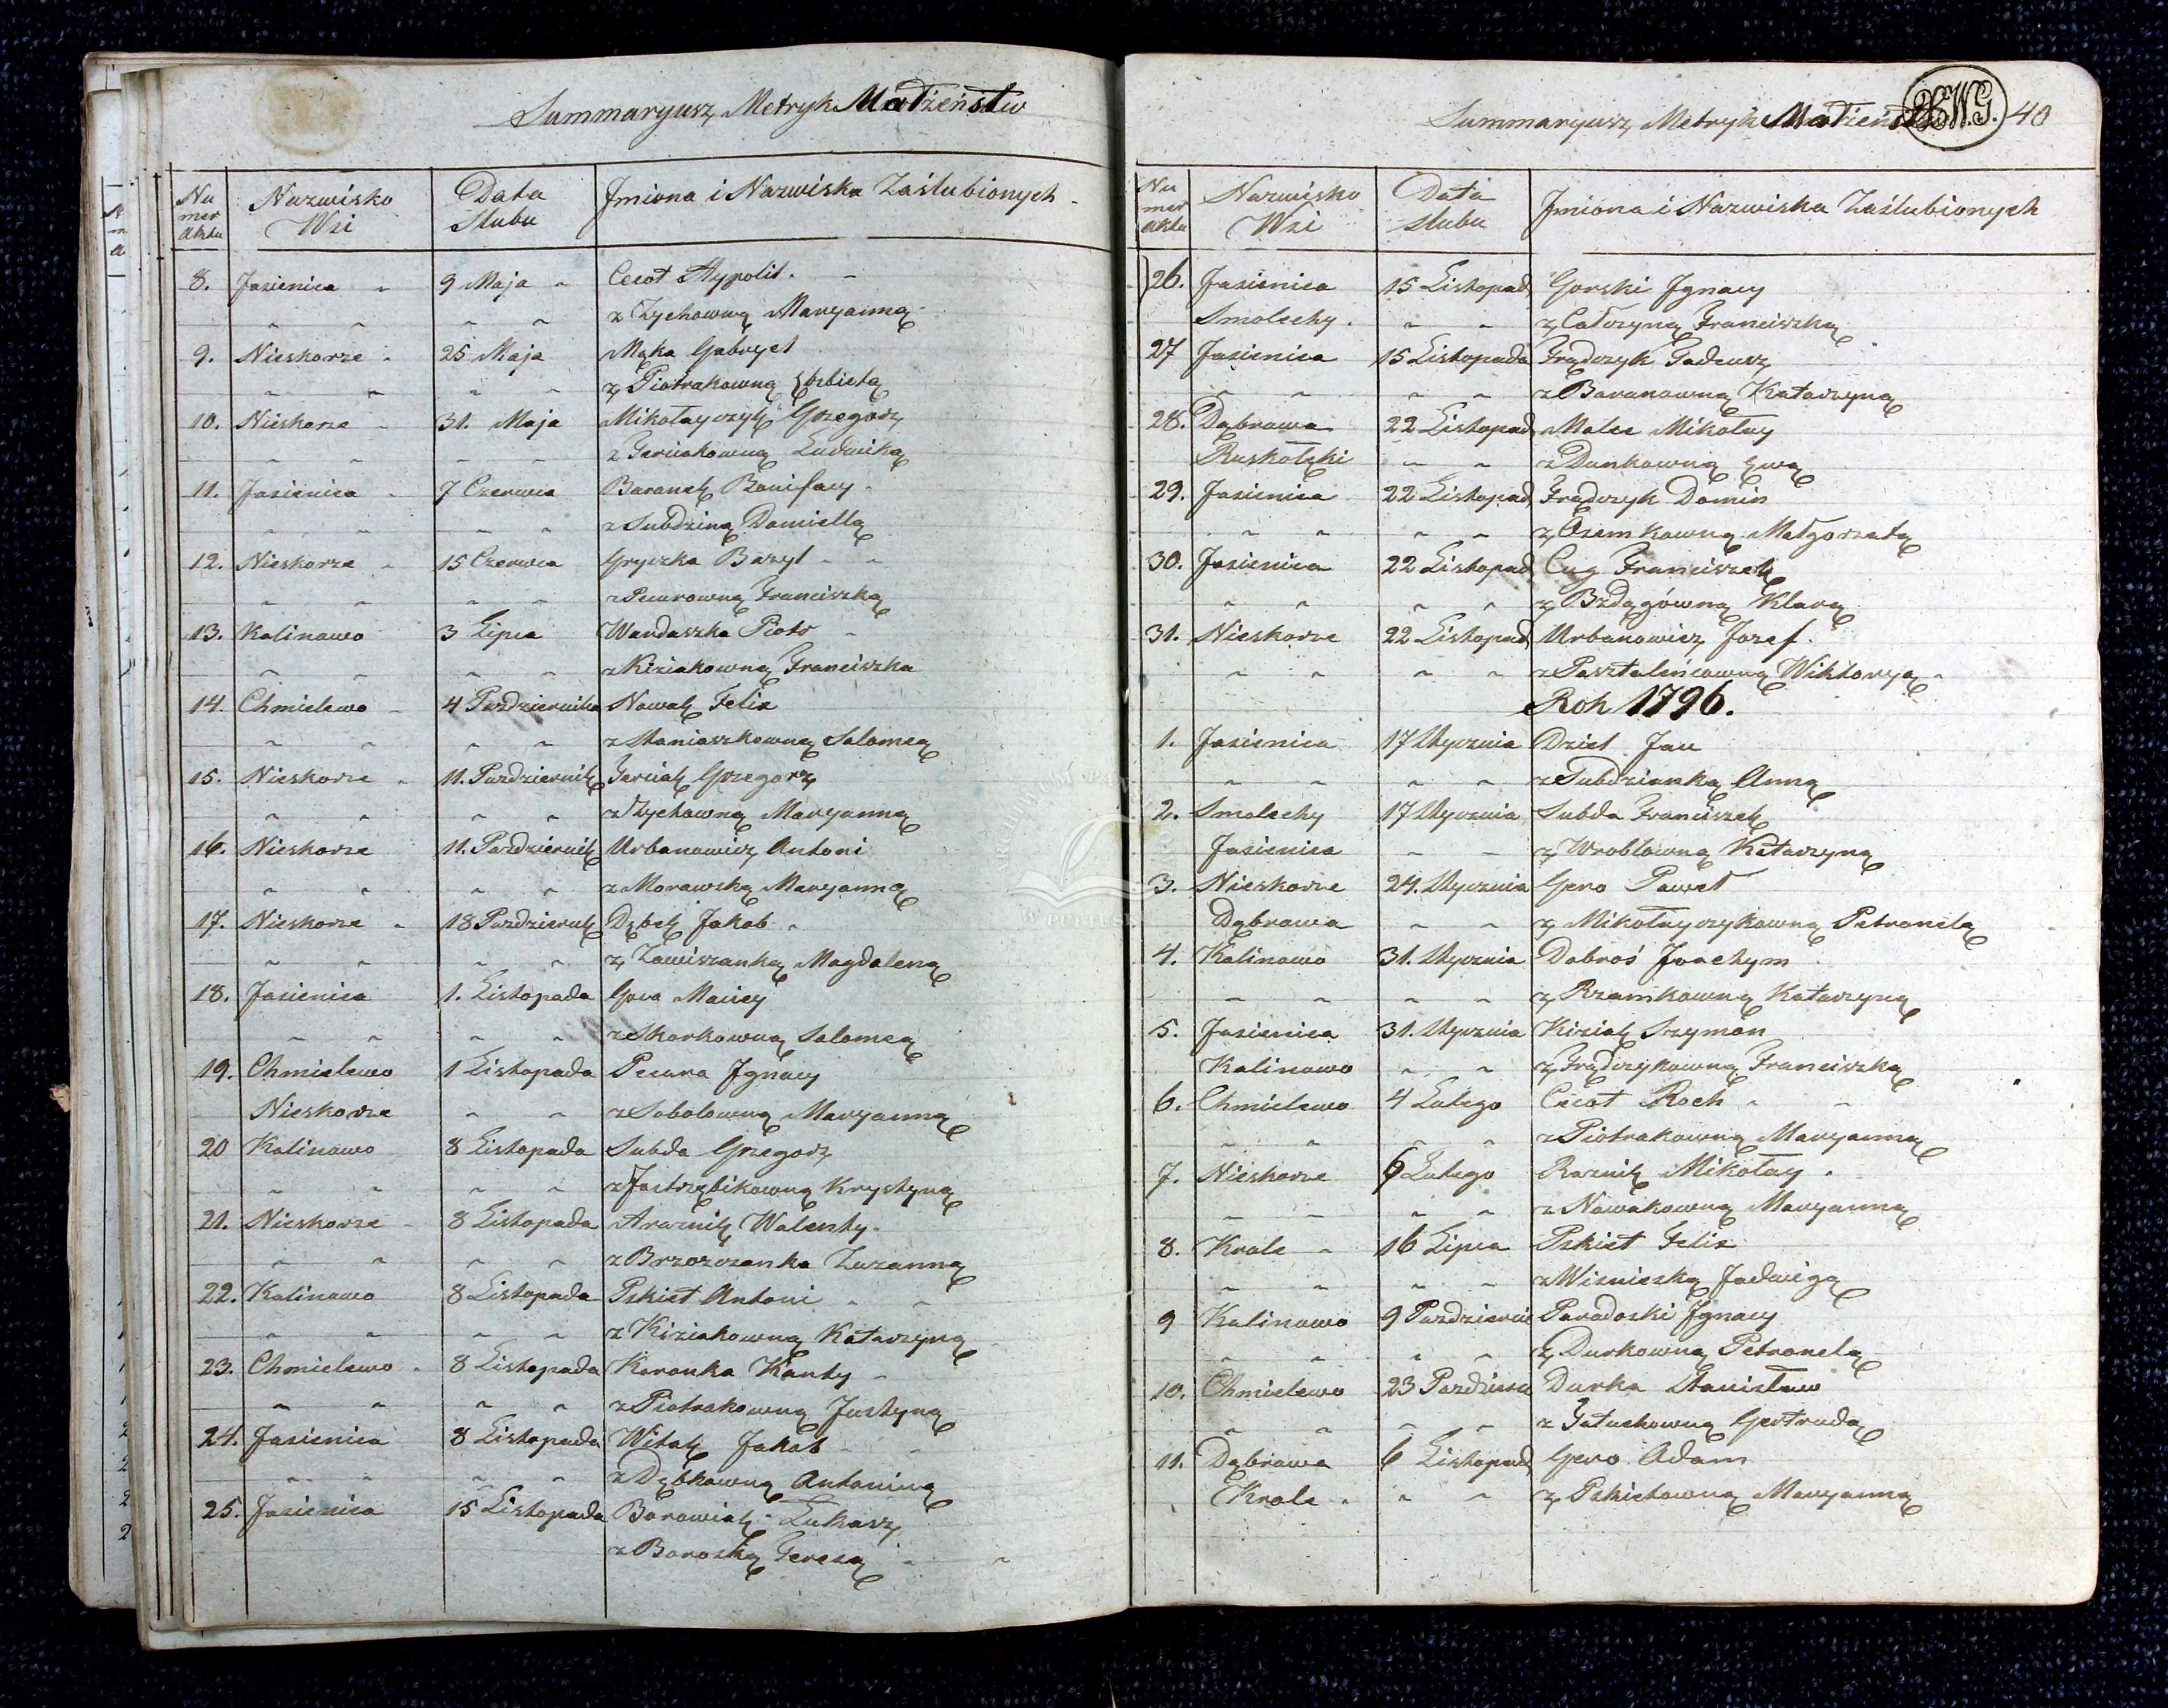 Summaryusz Metryk Małżeństw
Nu mer aktu Nazwisko Wsi Data slubu Jmiona i Nazwiska Zaślubionych
8. Jasienica 9 Maja Cecot Hypolit.
z Zychowną Maryanną
9. Nieskorze 25 Maja Mąka Gabryel
z Piotrakowną Elzbietą
10. Nieskorze 31. Maja Mikołayczyk Grzegorz
z Gerciakowną Ludwiką
11. Jasienica 7 Czerwca Baranek Bonifacy
z Subdziną Daniellą
12. Nieskorze 15 Czerwca Gryczka Bazyl
z Pecurowną Franciszką
13. Kalinowo 3 Lipca Wandaszka Piotr
z Kiziakowną Franciszka
14. Chmielewo 4 Pazdziernika Nowak Felix
z Staniaszkowną Salomeą
15. Nieskorze 11. Pazdziernik Gerciak Grzegorz
z Zychowną Maryanną
16. Nieskorze 11. Pazdziernik Urbanowicz Antoni
z Morawską Maryanną
17. Nieskorze 18 Pazdziernik Dąbek Jakob
z Zawiszanką Magdaleną
18. Jasienica 1. Listopada Gora Maciey
z Skorkowną Salomeą
19. Chmielewo 1 Listopada Pecura Jgnacy
Nieskorze z Sobolowną Maryanną
20 Kalinowo 8 Listopada Subda Grzegorz
z Jastrzębikowną Krystyną
21. Nieskorze 8 Listopada Araznik Walenty
z Brzozczanka Zuzanną
22. Kalinowo 8 Listopada Pskiet Antoni
z Kiziakowną Katarzyną
23. Chmielewo 8 Listopada Koronka Kanty
z Piotrakowną Justyną
24. Jasienica 8 Listopada Witak Jakob
z Dąbkowną Antoniną
25. Jasienica 15 Listopada Borowiak Łukasz
z Boroską Teresą
Summaryusz Metryk Małżeństw 40
Nu mer aktu Nazwisko Wsi Data slubu Jmiona i Nazwiska Zaślubionych
26. Jasienica 15 Listopad Gorski Jgnacy
Smolechy z Całczyną Franciszką
27 Jasienica 15 Listopada Frądczyk Tadeusz
z Baranowną Katarzyną
28. Dąbrowa 22 Listopad Malec Mikołay
Ruskołęki z Dunkowną Ewą
29. Jasienica 22 Listopad Frądczyk Domin
z Osemkowną Małgorzatą
30. Jasienica 22 Listopad Cug Franciszek
z Bzdągówną Klarą
31. Nieskorze 22 Listopad Urbanowicz Jozef
z Pasztaleńcowną Wiktoryą
Rok 1796.
1. Jasienica 17 Stycznia Dziet Jan
z Subdzianką Anną
2. Smolechy 17 Stycznia Subda Franciszek
Jasienica z Wroblowną Katarzyną
3. Nieskorze 24. Stycznia Gero Paweł
Dąbrowa z Mikołayczykowną Petronelą
4. Kalinowo 31. Stycznia Dobroś Joachym
z Rzamkowną Katarzyną
5. Jasienica 31. Stycznia Kiziak Szymon
Kalinowo z Frądczykowną Franciszką
6. Chmielewo 4 Lutego Cecot Roch
z Piotrakowną Maryanną
7. Nieskorze 6 Lutego Raznik Mikołay
z Nowakowną Maryanną
8. Krole 16 Lipca Pskiet Felix
z Wisnieską Jadwigą
9 Kalinowo 9 Pazdziernic Paradoski Jgnacy
z Durkowną Petronelą
10. Chmielewo 23 Pazdziern Durka Stanisław
z Gatuchowną Gertrudą
11. Dąbrowa 6 Listopad Gero Adam
Krole z Pskietowną Maryanną